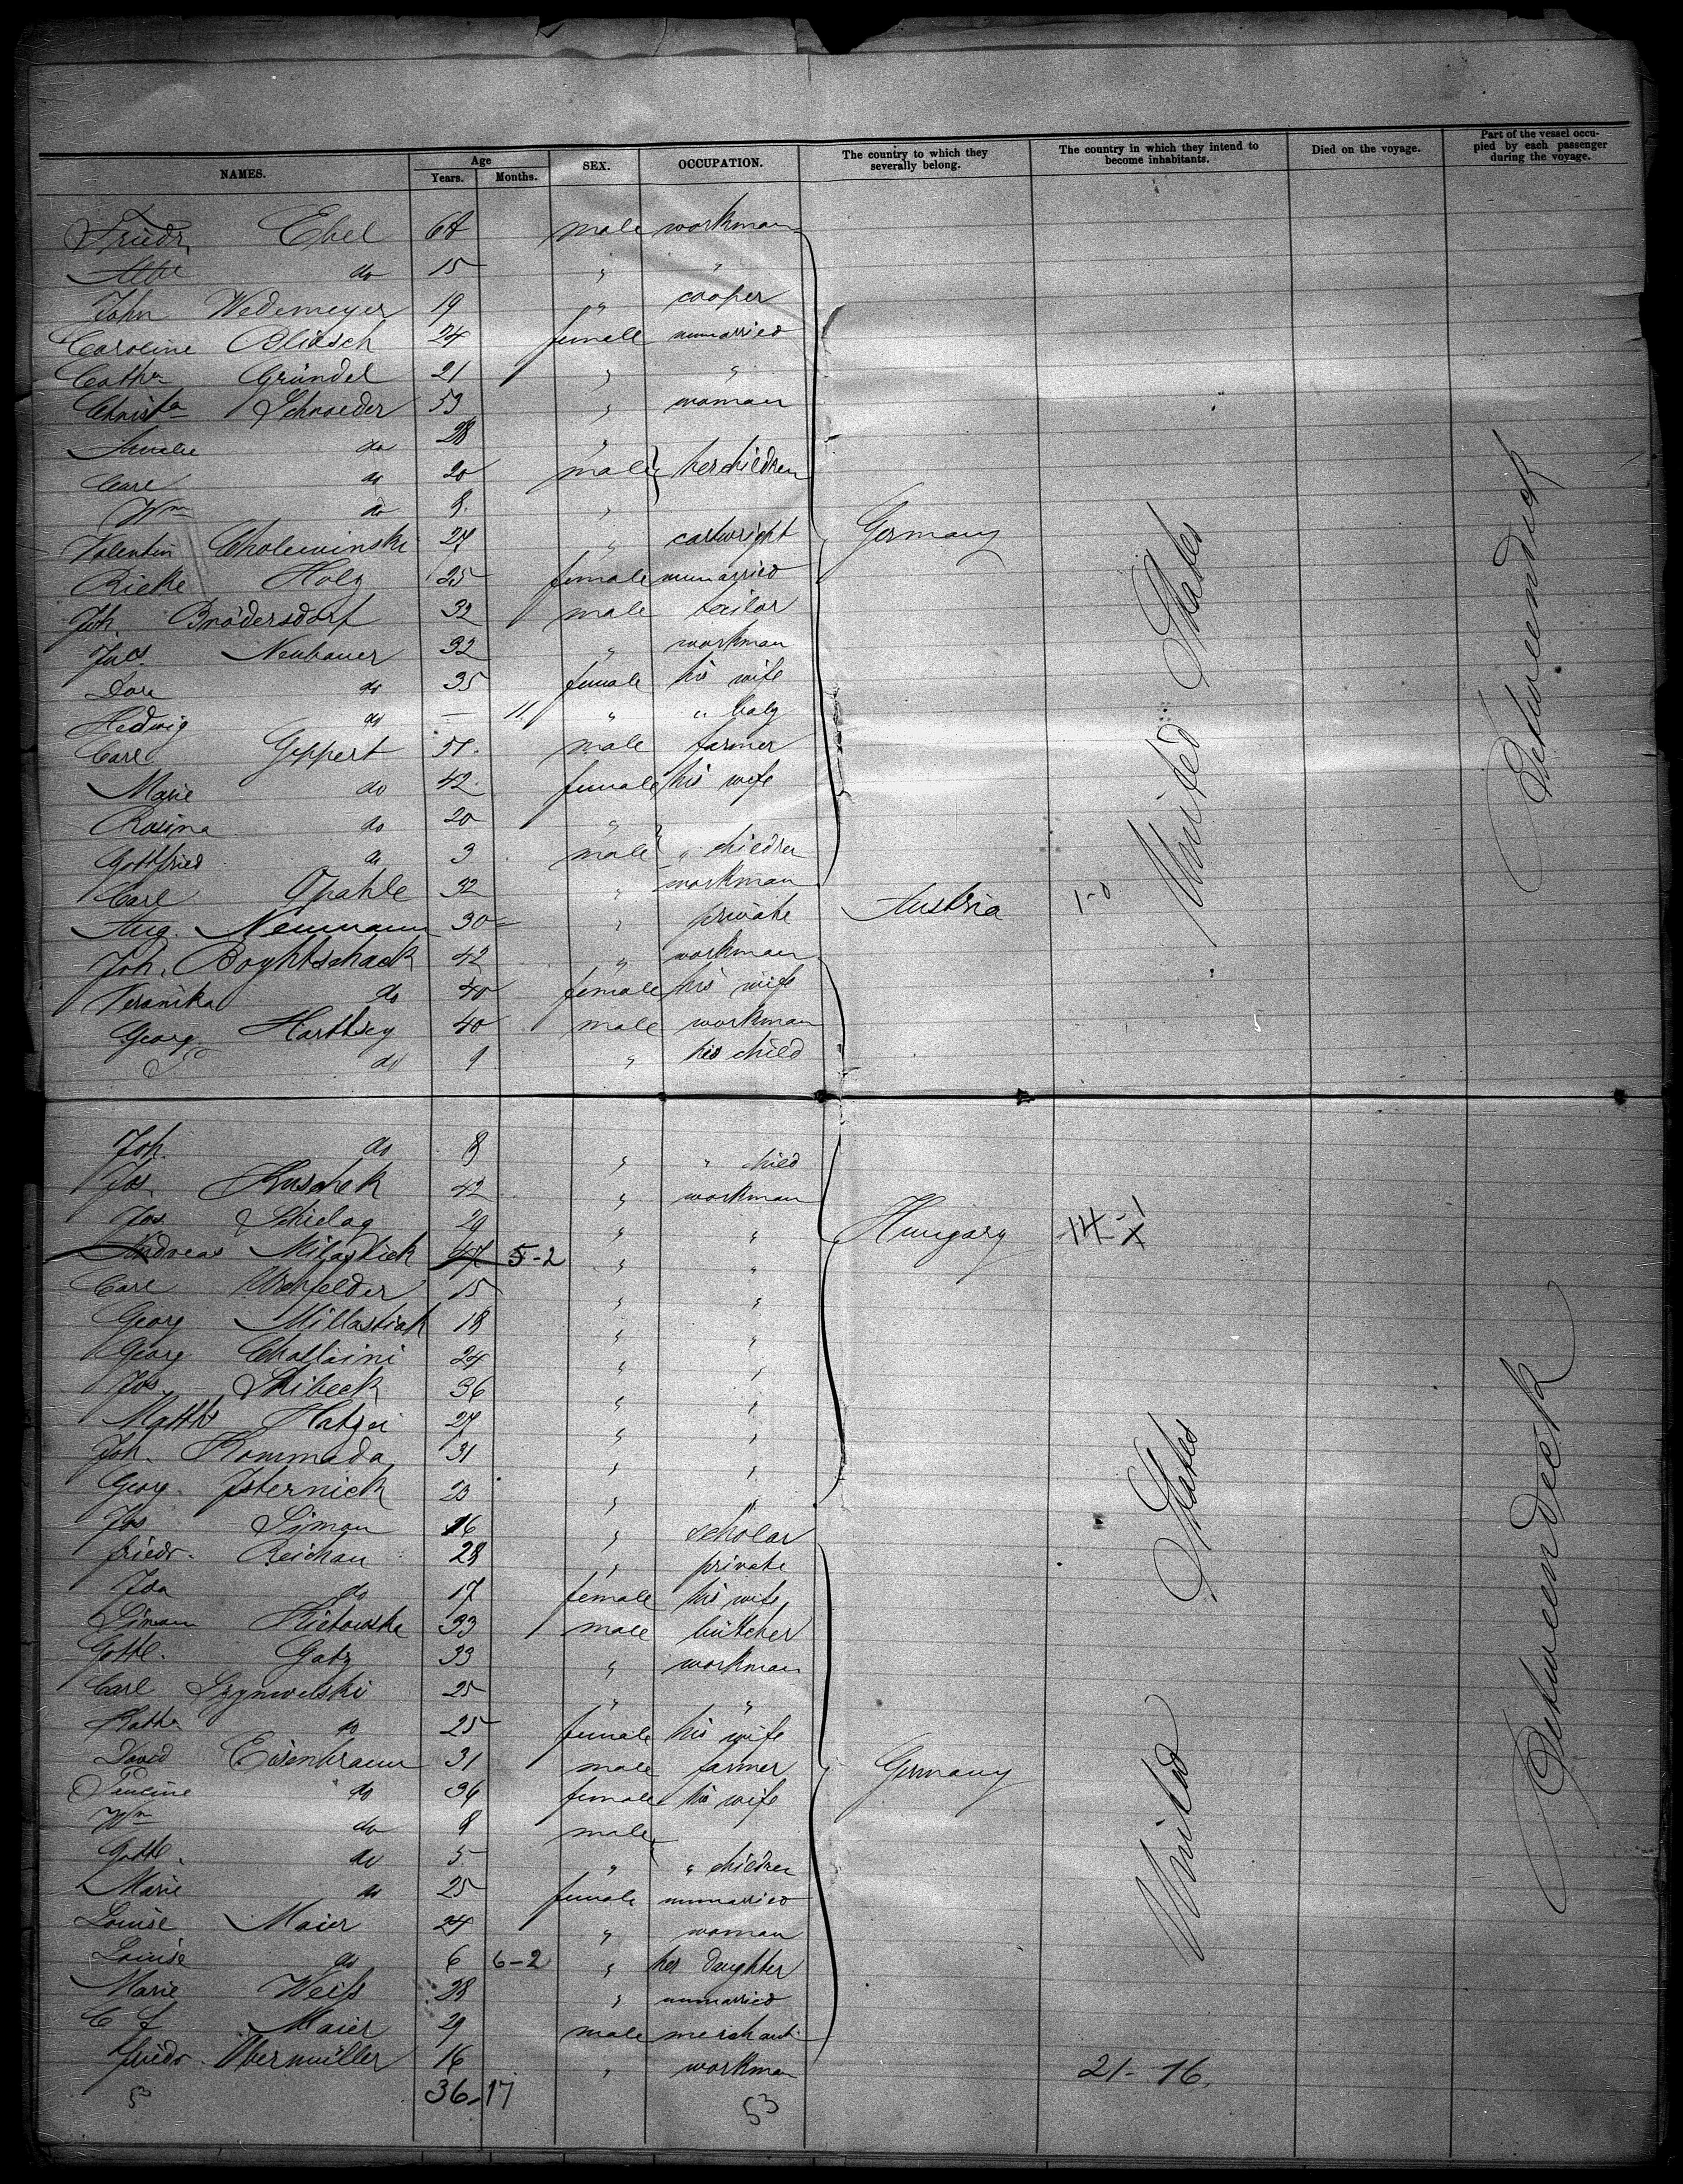 NAMES. Age Years. Months. SEX. OCCUPATION. The country to which they severally belong. The country in which they intend to become inhabitants. Died on the voyage. Part of the vessel occupied by each passenger during the voyage.
Friedr. Ebel 64 male workman
do 15 " "
John Wedemeyer 19 " cooper
Caroline 24 female unmarried
Cathn Gründel 21 " "
Christa Schroeder 53 " woman
Amalie do 28 "
Carl do 20 male her children
Wm do 8 "
Valentin Cholewinski 27 " cartwright Germany
Rieke Holz 25 female unmarried
Joh. Brödersdorf 32 male tailor
Neubauer 32 " workman
Dore do 35 female his wife
Hedwig do — 11 " " baby
Carl Geppert 51 male farmer
Marie do 42 female his wife
Rosina do 20 "
Gottfried do 3 male " children
Carl Opahle 32 " workman
Aug. Neumann 30 " private Austria 1-0
Joh. Boghtschack 42 " workman
Veronika do 40 female his wife
Georg Harthey 40 male workman
do 9 " his child
United States
Joh. do 8 " " child
Jos. Ruschek 42 " workman
Jos. 29 " "
Hungary 14-1
Andreas Milastick 47 5-2 " "
Carl 15 " "
Georg Millastiak 18 " "
Georg Challaini 24 " "
Jos. Skibeck 36 " "
Matths Hatzei 27 " "
Joh. Kommada 31 " "
Georg. Isternick 23 " "
Jos. Simon 16 " scholar
Friedr. Reichau 28 " private
Ida do 17 female his wife
Simon 33 male butcher
Gottl. Gatz 33 " workman
Carl 25 " "
Kathn do 25 female his wife
David Eisenbraun 31 male farmer Germany
Pauline do 34 female his wife
Wm do 8 male
Gottl. do 5 " " children
Marie do 25 female unmarried
Louise Maier 24 " woman
Louise do 6 6-2 " her daughter
Marie Weiß 28 " unmarried
C F Maier 29 male merchant
Friedr. Obermüller 16 " workman
53 36-17 53 21-16
United States
Betweendeck
Betweendeck